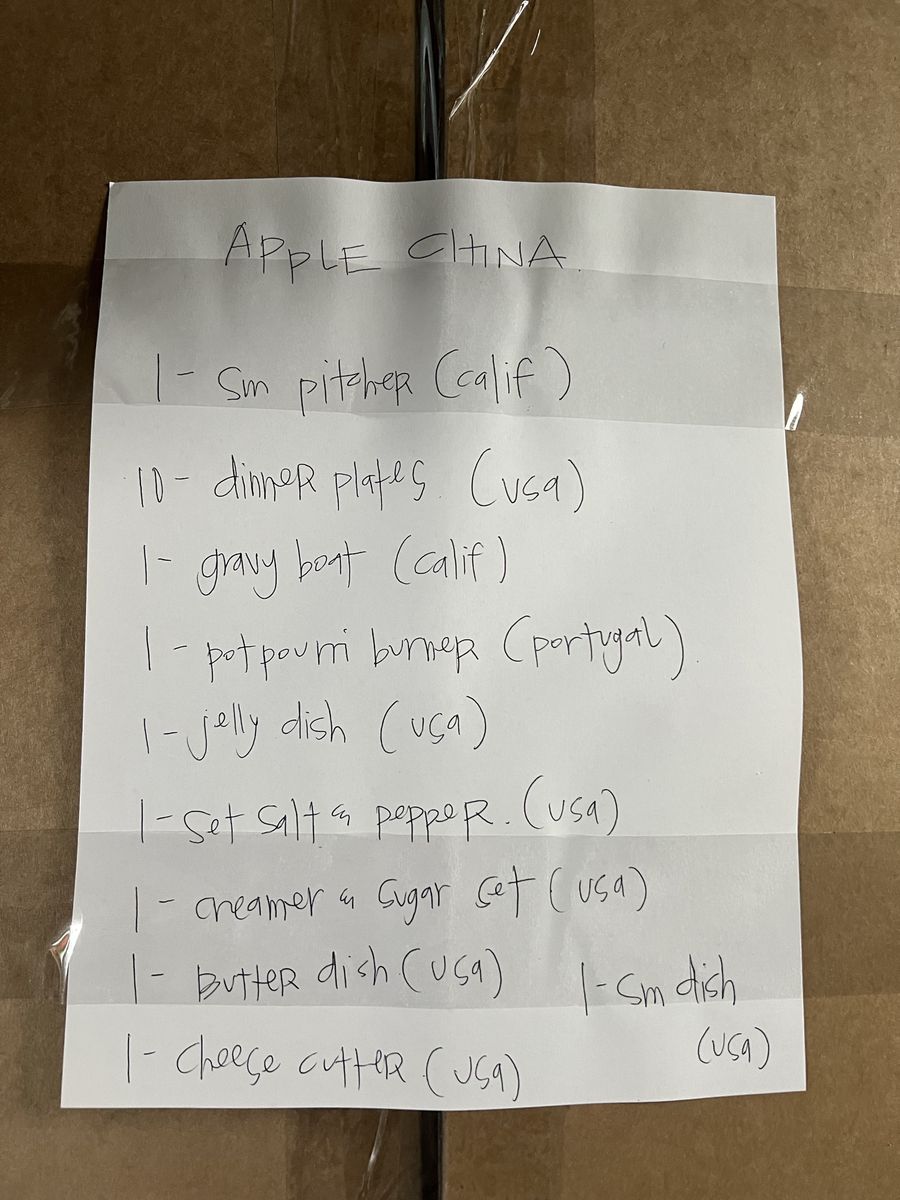 APPLE CHINA.
1- sm pitcher (calif)
10- dinner plates. (usa)
1- gravy boat (calif)
1- potpourri burner (portugal).
1- jelly dish (usa)
1- set salt & pepper. (usa)
1- creamer & sugar set (usa)
1- butter dish (usa)
1- cheese cutter (usa)
1- sm dish
(usa)